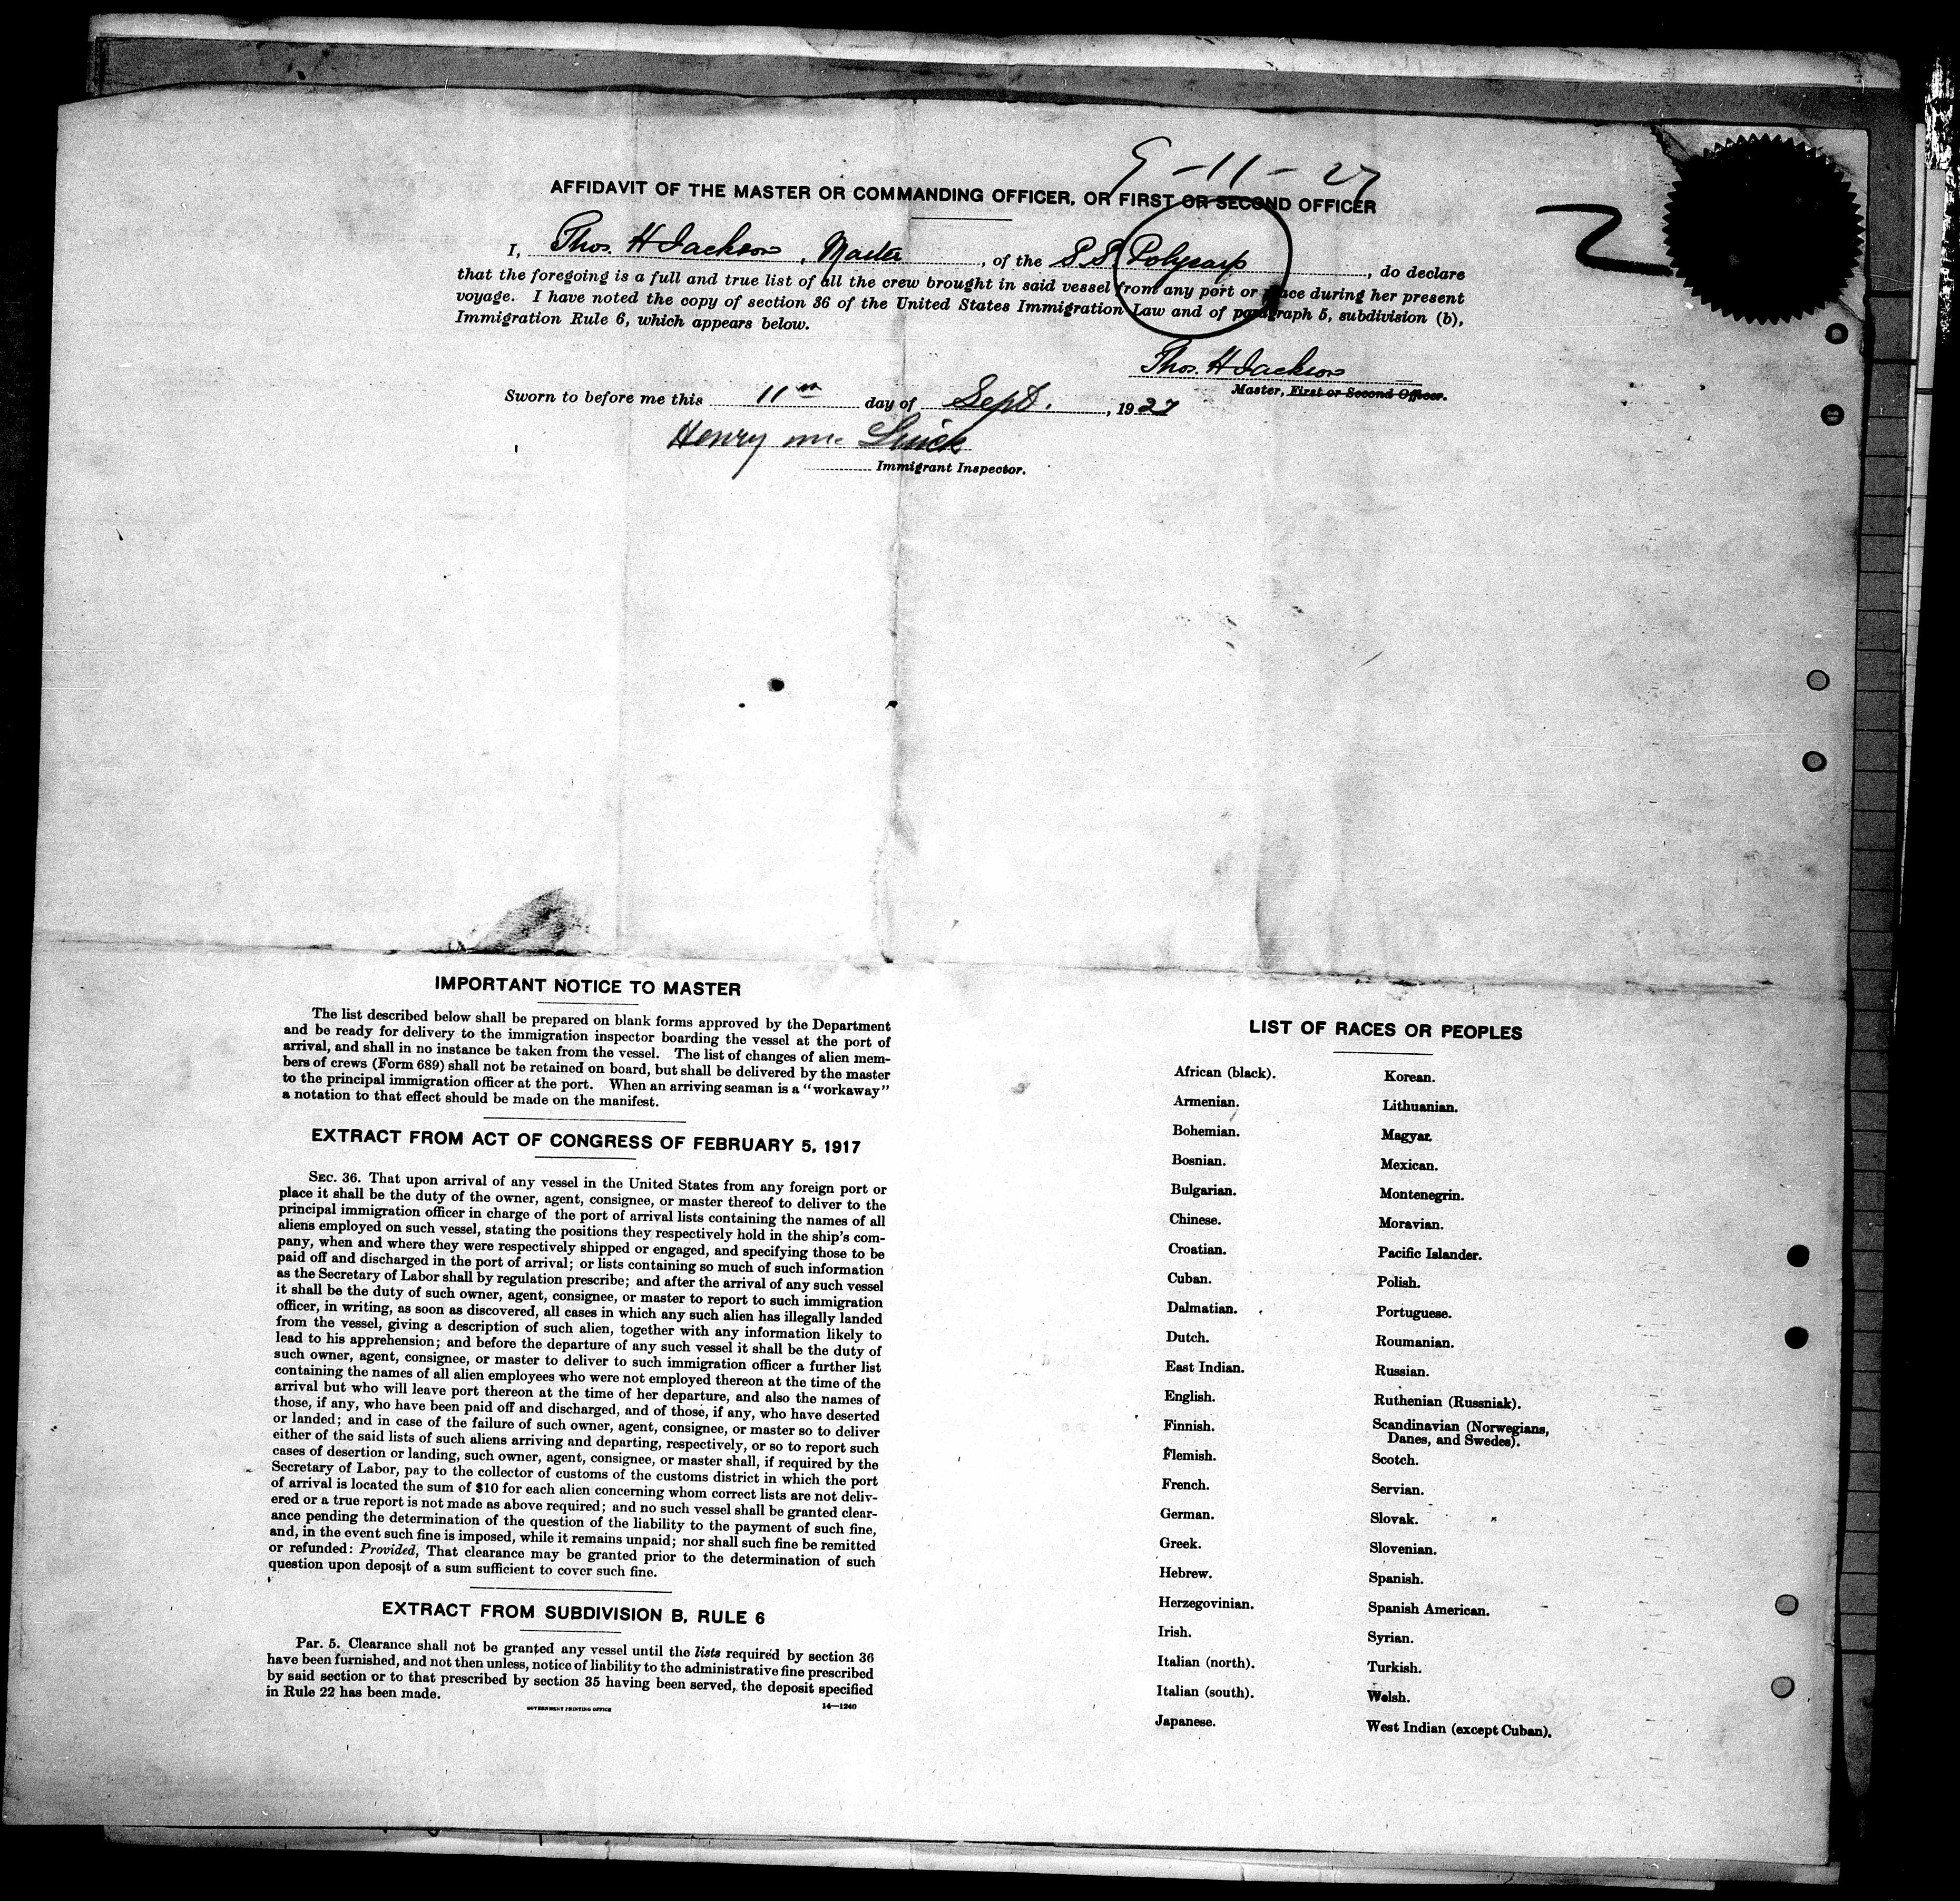 9-11-27
AFFIDAVIT OF THE MASTER OR COMMANDING OFFICER, OR FIRST OR SECOND OFFICER
I, Thos. H Jackson, Master, of the S.S. Polycarp, do declare
that the foregoing is a full and true list of all the crew brought in said vessel from any port or place during her present
voyage. I have noted the copy of section 36 of the United States Immigration Law and of paragraph 5, subdivision (b),
Immigration Rule 6, which appears below.
Thos. H Jackson
Master, First or Second Officer.
Sworn to before me this 11th day of Sept., 1927
Henry
Immigrant Inspector.
IMPORTANT NOTICE TO MASTER
The list described below shall be prepared on blank forms approved by the Department
and be ready for delivery to the immigration inspector boarding the vessel at the port of
arrival, and shall in no instance be taken from the vessel. The list of changes of alien mem-
bers of crews (Form 689) shall not be retained on board, but shall be delivered by the master
to the principal immigration officer at the port. When an arriving seaman is a "workaway"
a notation to that effect should be made on the manifest.
EXTRACT FROM ACT OF CONGRESS OF FEBRUARY 5, 1917
SEC. 36. That upon arrival of any vessel in the United States from any foreign port or
place it shall be the duty of the owner, agent, consignee, or master thereof to deliver to the
principal immigration officer in charge of the port of arrival lists containing the names of all
aliens employed on such vessel, stating the positions they respectively hold in the ship's com-
pany, when and where they were respectively shipped or engaged, and specifying those to be
paid off and discharged in the port of arrival; or lists containing so much of such information
as the Secretary of Labor shall by regulation prescribe; and after the arrival of any such vessel
it shall be the duty of such owner, agent, consignee, or master to report to such immigration
officer, in writing, as soon as discovered, all cases in which any such alien has illegally landed
from the vessel, giving a description of such alien, together with any information likely to
lead to his apprehension; and before the departure of any such vessel it shall be the duty of
such owner, agent, consignee, or master to deliver to such immigration officer a further list
containing the names of all alien employees who were not employed thereon at the time of the
arrival but who will leave port thereon at the time of her departure, and also the names of
those, if any, who have been paid off and discharged, and of those, if any, who have deserted
or landed; and in case of the failure of such owner, agent, consignee, or master so to deliver
either of the said lists of such aliens arriving and departing, respectively, or so to report such
cases of desertion or landing, such owner, agent, consignee, or master shall, if required by the
Secretary of Labor, pay to the collector of customs of the customs district in which the port
of arrival is located the sum of $10 for each alien concerning whom correct lists are not deliv-
ered or a true report is not made as above required; and no such vessel shall be granted clear-
ance pending the determination of the question of the liability to the payment of such fine,
and, in the event such fine is imposed, while it remains unpaid; nor shall such fine be remitted
or refunded: Provided, That clearance may be granted prior to the determination of such
question upon deposit of a sum sufficient to cover such fine.
EXTRACT FROM SUBDIVISION B, RULE 6
Par. 5. Clearance shall not be granted any vessel until the lists required by section 36
have been furnished, and not then unless, notice of liability to the administrative fine prescribed
by said section or to that prescribed by section 35 having been served, the deposit specified
in Rule 22 has been made.
GOVERNMENT PRINTING OFFICE 14—1240
LIST OF RACES OR PEOPLES
African (black).
Armenian.
Bohemian.
Bosnian.
Bulgarian.
Chinese.
Croatian.
Cuban.
Dalmatian.
Dutch.
East Indian.
English.
Finnish.
Flemish.
French.
German.
Greek.
Hebrew.
Herzegovinian.
Irish.
Italian (north).
Italian (south).
Japanese.
Korean.
Lithuanian.
Magyar.
Mexican.
Montenegrin.
Moravian.
Pacific Islander.
Polish.
Portuguese.
Roumanian.
Russian.
Ruthenian (Russniak).
Scandinavian (Norwegians,
Danes, and Swedes).
Scotch.
Servian.
Slovak.
Slovenian.
Spanish.
Spanish American.
Syrian.
Turkish.
Welsh.
West Indian (except Cuban).